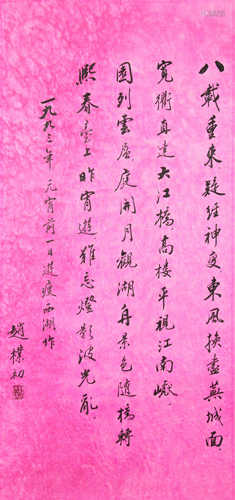 八載重來疑經神变東風換盡蕪城面
寬衢直達大江橋高樓平視江南巘
園列雲屏庭開月觀湖舟景色随橋轉
熙春臺上昨宵遊難忘燈影波光亂
一九九三年元宵前一日遊瘦西湖作
趙樸初